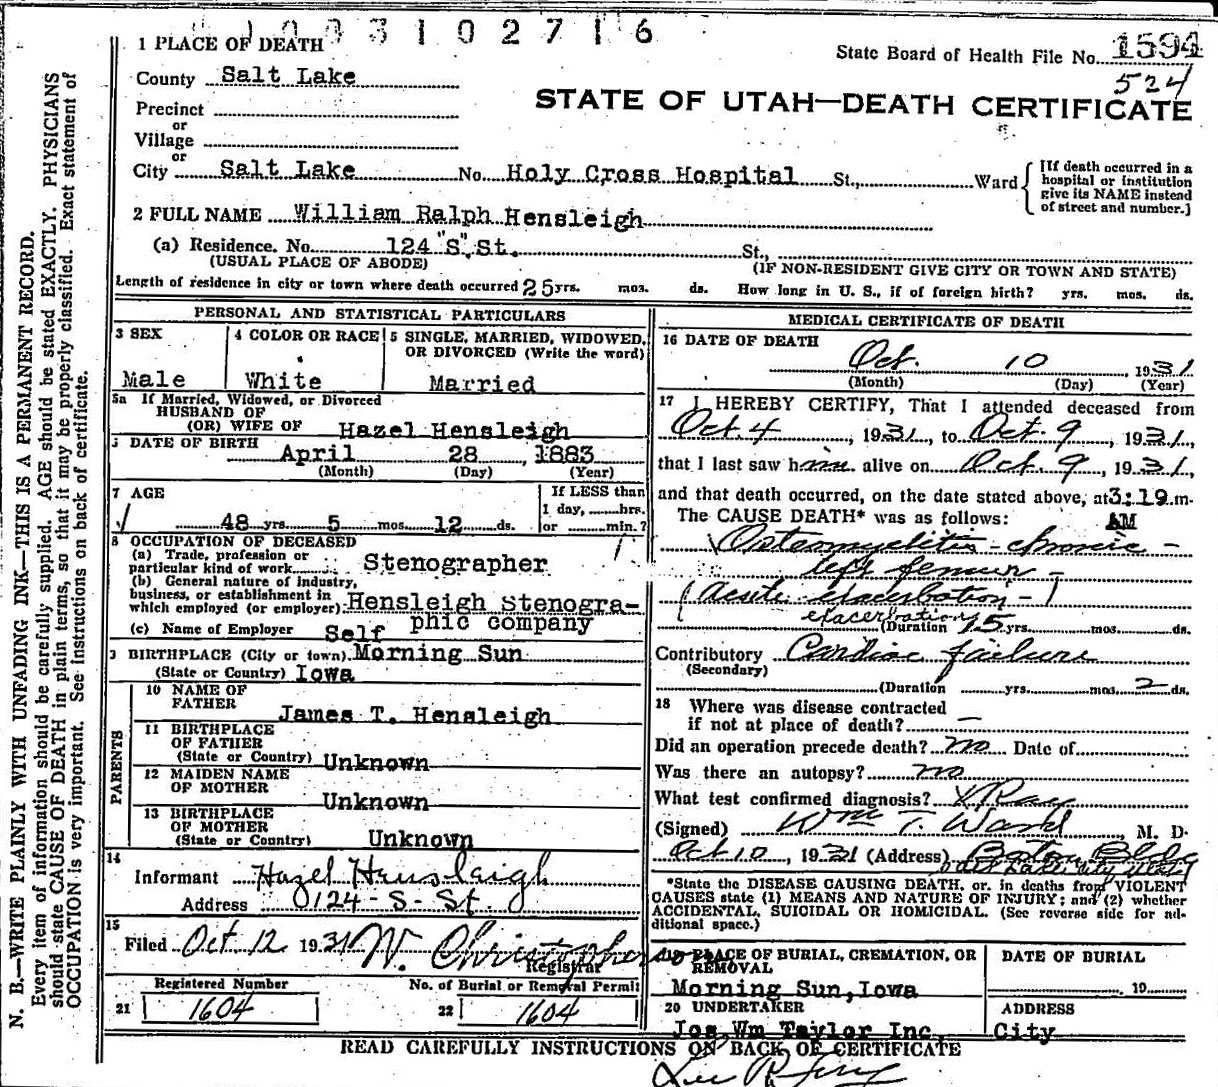 1 0 0 3 1 0 2 7 1 6
1 PLACE OF DEATH
State Board of Health File No. 1594
524
County Salt Lake
STATE OF UTAH—DEATH CERTIFICATE
Precinct
or
Village
or
City Salt Lake No. Holy Cross Hospital St., Ward
[If death occurred in a
hospital or institution
give its NAME instead
of street and number.]
2 FULL NAME William Ralph Hensleigh
(a) Residence. No. 124 "S" St. St.,
(USUAL PLACE OF ABODE) (IF NON-RESIDENT GIVE CITY OR TOWN AND STATE)
Length of residence in city or town where death occurred 25 yrs. mos. ds. How long in U. S., if of foreign birth? yrs. mos. ds.
PERSONAL AND STATISTICAL PARTICULARS
3 SEX
Male
4 COLOR OR RACE
White
5 SINGLE, MARRIED, WIDOWED,
OR DIVORCED (Write the word)
Married
5a If Married, Widowed, or Divorced
HUSBAND OF
(OR) WIFE OF Hazel Hensleigh
DATE OF BIRTH
April 28 1883
(Month) (Day) (Year)
7 AGE
48 yrs. 5 mos. 12 ds.
If LESS than
1 day, hrs.
or min.?
8 OCCUPATION OF DECEASED
(a) Trade, profession or
particular kind of work Stenographer
(b) General nature of industry,
business, or establishment in
which employed (or employer) Hensleigh Stenogra-
phic company
(c) Name of Employer Self
9 BIRTHPLACE (City or town) Morning Sun
(State or Country) Iowa
PARENTS
10 NAME OF
FATHER James T. Hensleigh
11 BIRTHPLACE
OF FATHER
(State or Country) Unknown
12 MAIDEN NAME
OF MOTHER Unknown
13 BIRTHPLACE
OF MOTHER
(State or Country) Unknown
14
Informant Hazel Hensleigh
Address 124-S-St.
15
Filed Oct 12 1931 W. Christopherson
Registrar
Registered Number
21 1604
No. of Burial or Removal Permit
22 1604
MEDICAL CERTIFICATE OF DEATH
16 DATE OF DEATH
Oct. 10, 1931
(Month) (Day) (Year)
17 I HEREBY CERTIFY, That I attended deceased from
Oct. 4, 1931, to Oct. 9, 1931,
that I last saw him alive on Oct. 9, 1931,
and that death occurred, on the date stated above, at 3:19 m.
AM
The CAUSE DEATH* was as follows:
Osteomyelitis - chronic -
left femur -
(Acute exacerbation -
exacerbation
(Duration 15 yrs. mos. ds.
Contributory Cardiac failure
(Secondary)
(Duration yrs. mos. 2 ds.
18 Where was disease contracted
if not at place of death? —
Did an operation precede death? no Date of
Was there an autopsy? no
What test confirmed diagnosis? X Ray
(Signed) Wm T. Ward, M. D.
Oct 10, 1931 (Address) Boston Bldg
Salt Lake City Utah
*State the DISEASE CAUSING DEATH, or, in deaths from VIOLENT
CAUSES state (1) MEANS AND NATURE OF INJURY; and (2) whether
ACCIDENTAL, SUICIDAL OR HOMICIDAL. (See reverse side for ad-
ditional space.)
19 PLACE OF BURIAL, CREMATION, OR
REMOVAL
Morning Sun, Iowa
DATE OF BURIAL
19
20 UNDERTAKER
Jos Wm Taylor Inc.
ADDRESS
City
READ CAREFULLY INSTRUCTIONS ON BACK OF CERTIFICATE
N. B.—WRITE PLAINLY WITH UNFADING INK—THIS IS A PERMANENT RECORD.
Every item of information should be carefully supplied. AGE should be stated EXACTLY. PHYSICIANS
should state CAUSE OF DEATH in plain terms, so that it may be properly classified. Exact statement of
OCCUPATION is very important. See instructions on back of certificate.